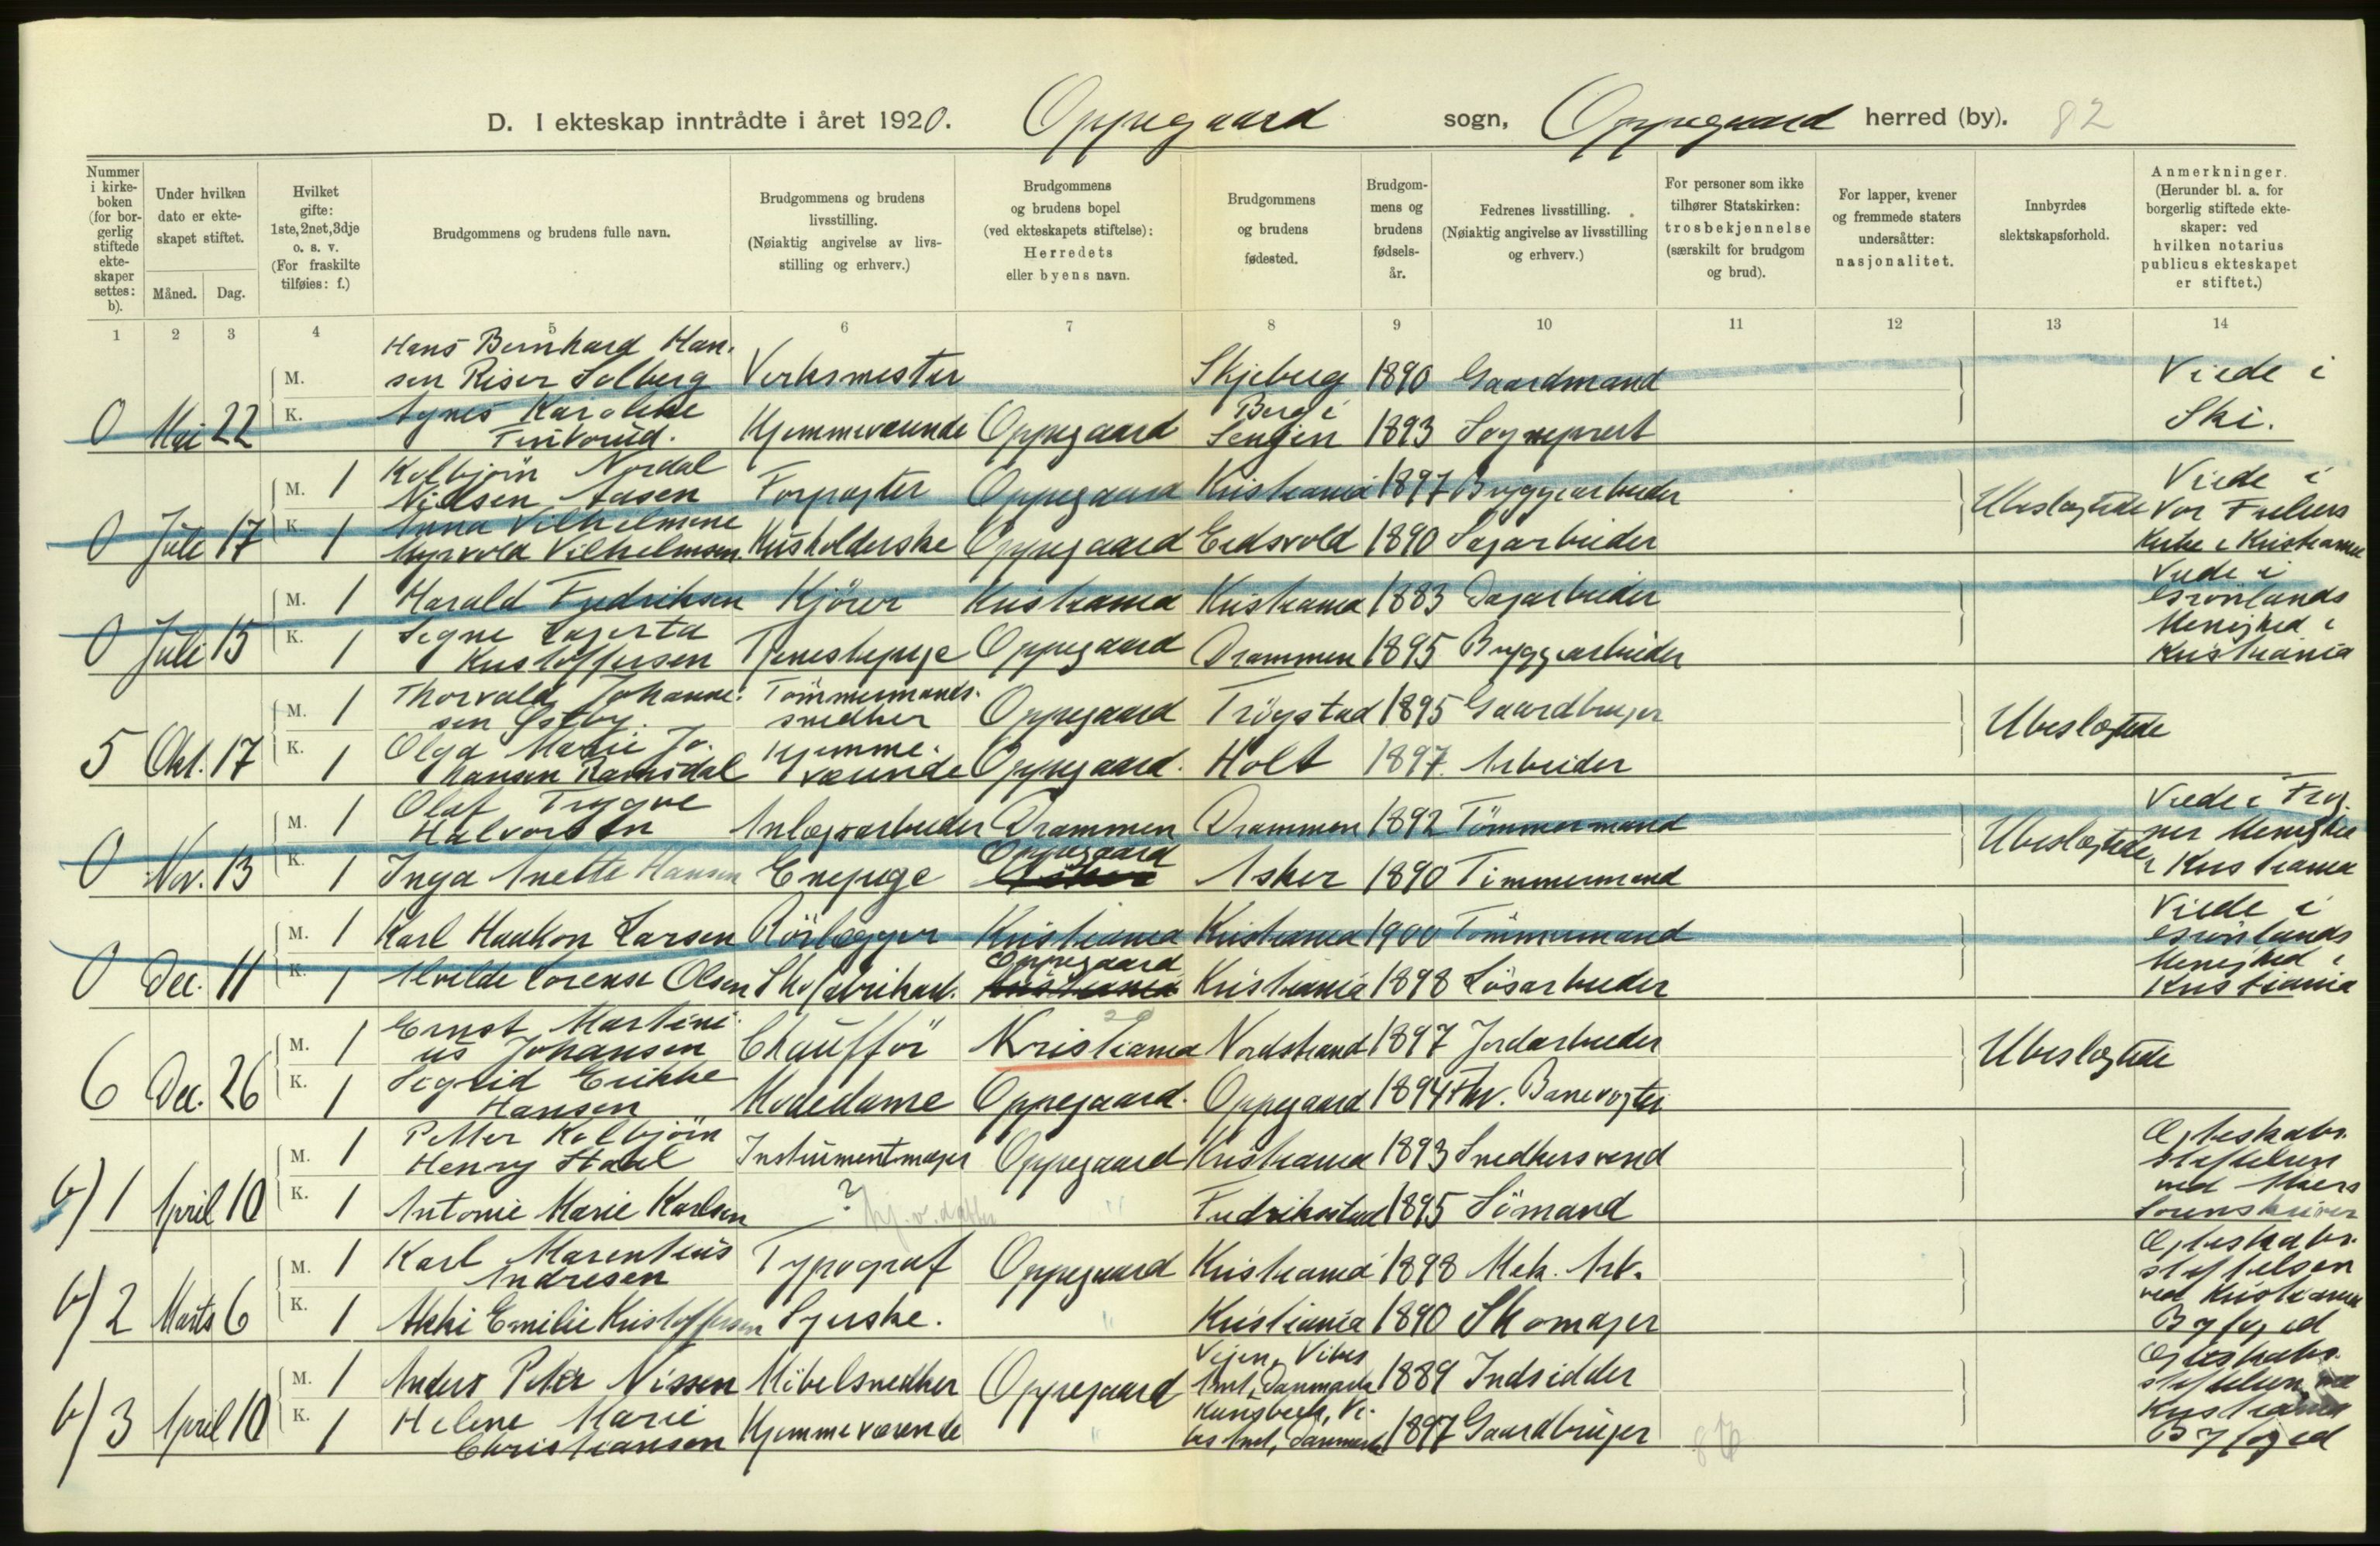 D. I ekteskap inntrådte i året 1920. Oppegaard sogn, Oppegaard herred (by). 82
Nummer i kirke- boken (for bor- gerlig stiftede ekte- skaper settes: b).
Under hvilken dato er ekte- skapet stiftet.
Måned. Dag.
Hvilket gifte: 1ste, 2net, 3dje o. s. v. (For fraskilte tilføies: f.)
Brudgommens og brudens fulle navn.
Brudgommens og brudens livsstilling. (Nøiaktig angivelse av livs- stilling og erhverv.)
Brudgommens og brudens bopel (ved ekteskapets stiftelse): Herredets eller byens navn.
Brudgommens og brudens fødested.
Brudgom- mens og brudens fødsels- år.
Fedrenes livsstilling. (Nøiaktig angivelse av livsstilling og erhverv.)
For personer som ikke tilhører Statskirken: trosbekjennelse (særskilt for brudgom og brud).
For lapper, kvener og fremmede staters undersåtter: nasjonalitet.
Innbyrdes slektskapsforhold.
Anmerkninger. (Herunder bl. a. for borgerlig stiftede ekte- skaper: ved hvilken notarius publicus ekteskapet er stiftet.)
1 2 3 4 5 6 7 8 9 10 11 12 13 14
Hans Bernhard Han-
M. sen Riser Solberg Verksmester Skjeberg 1890 Gaardmand Viede i
K. Agnes Karoline Berg i
0 Mai 22 Hjemmeværende Oppegaard Senjen 1893 Sogneprest Ski.
Kolbjørn Nordal Viede i
M. 1 Nielsen Aasen Forpagter Oppegaard Kristiania 1897 Bryggearbeider
K. Anna Vilhelmine Ubeslægtede Vor Frelsers
0 Juli 17 1 Vilhelmsen Husholderske Oppegaard Eidsvold 1890 Sagarbeider Kirke i Kristiania
Viede i
M. 1 Harald Fredriksen Kjører Kristiania Kristiania 1883 Dagarbeider Grønlands
K. Signe Lagerta Menighed i
0 Juli 15 1 Kristoffersen Tjenestepige Oppegaard Drammen 1895 Bryggearbeider Kristiania
Thorvald Johanne- Tømmermands-
M. 1 sen Østby. snedker Oppegaard Trøgstad 1895 Gaardbruger Ubeslægtede
K. Olga Marie Jo- Hjemme-
5 Okt. 17 1 hansen Ramsdal værende Oppegaard. Holt 1897. Arbeider
Olaf Trygve Viede i Frog-
M. 1 Halvorsen Anlægsarbeider Drammen Drammen 1892 Tømmermand Ubeslægtede ner Menighed
Oppegaard
0 Nov. 13 K. 1 Inga Anette Hansen Enepige Asker Asker 1890 Tømmermand i Kristiania
Viede i
M. 1 Karl Haakon Larsen Rørlægger Kristiania Kristiania 1900 Tømmermand Grønlands
Oppegaard Menighed i
0 Dec. 11 K. 1 Alvilde Lorense Olsen Skofabrikarb. Kristiania Kristiania 1898 Løsarbeider Kristiania
Ernst Martini-
M. 1 us Johansen Chauffør Kristiania Nordstrand 1897 Jordarbeider Ubeslægtede
K. Sigrid Erikke
6 Dec. 26 1 Hansen Modedame Oppegaard. Oppegaard 1894 Fhv. Banevogter
Petter Kolbjørn Ægteskabs-
M. 1 Henry Stahl Instrumentmager Oppegaard Kristiania 1893 Snedkersvend stiftelsen
ved Akers
b) 1 April 10 K. 1 Antonie Marie Karlsen ? hj. v. datter " Fredrikstad 1895 Sømand Sorenskriver
Karl Marentius Ægteskabs-
M. 1 Andresen Typograf Oppegaard Kristiania 1898 Mek. Arb. stiftelsen
ved Kristiania
b) 2 Marts 6 K. 1 Akki Emilie Kristoffersen Syerske. " Kristiania 1890 Skomager Byfoged
Vejen, Vibes Ægteskabs-
M. 1 Anders Peter Nissen Møbelsnedker Oppegaard Amt, Danmark 1889 Indsidder stiftelsen ved
K. Helene Marie Kristiania
b) 3 April 10 1 Christiansen Hjemmeværende " bes Amt, Danmark 1897 Gaardbruger Byfoged